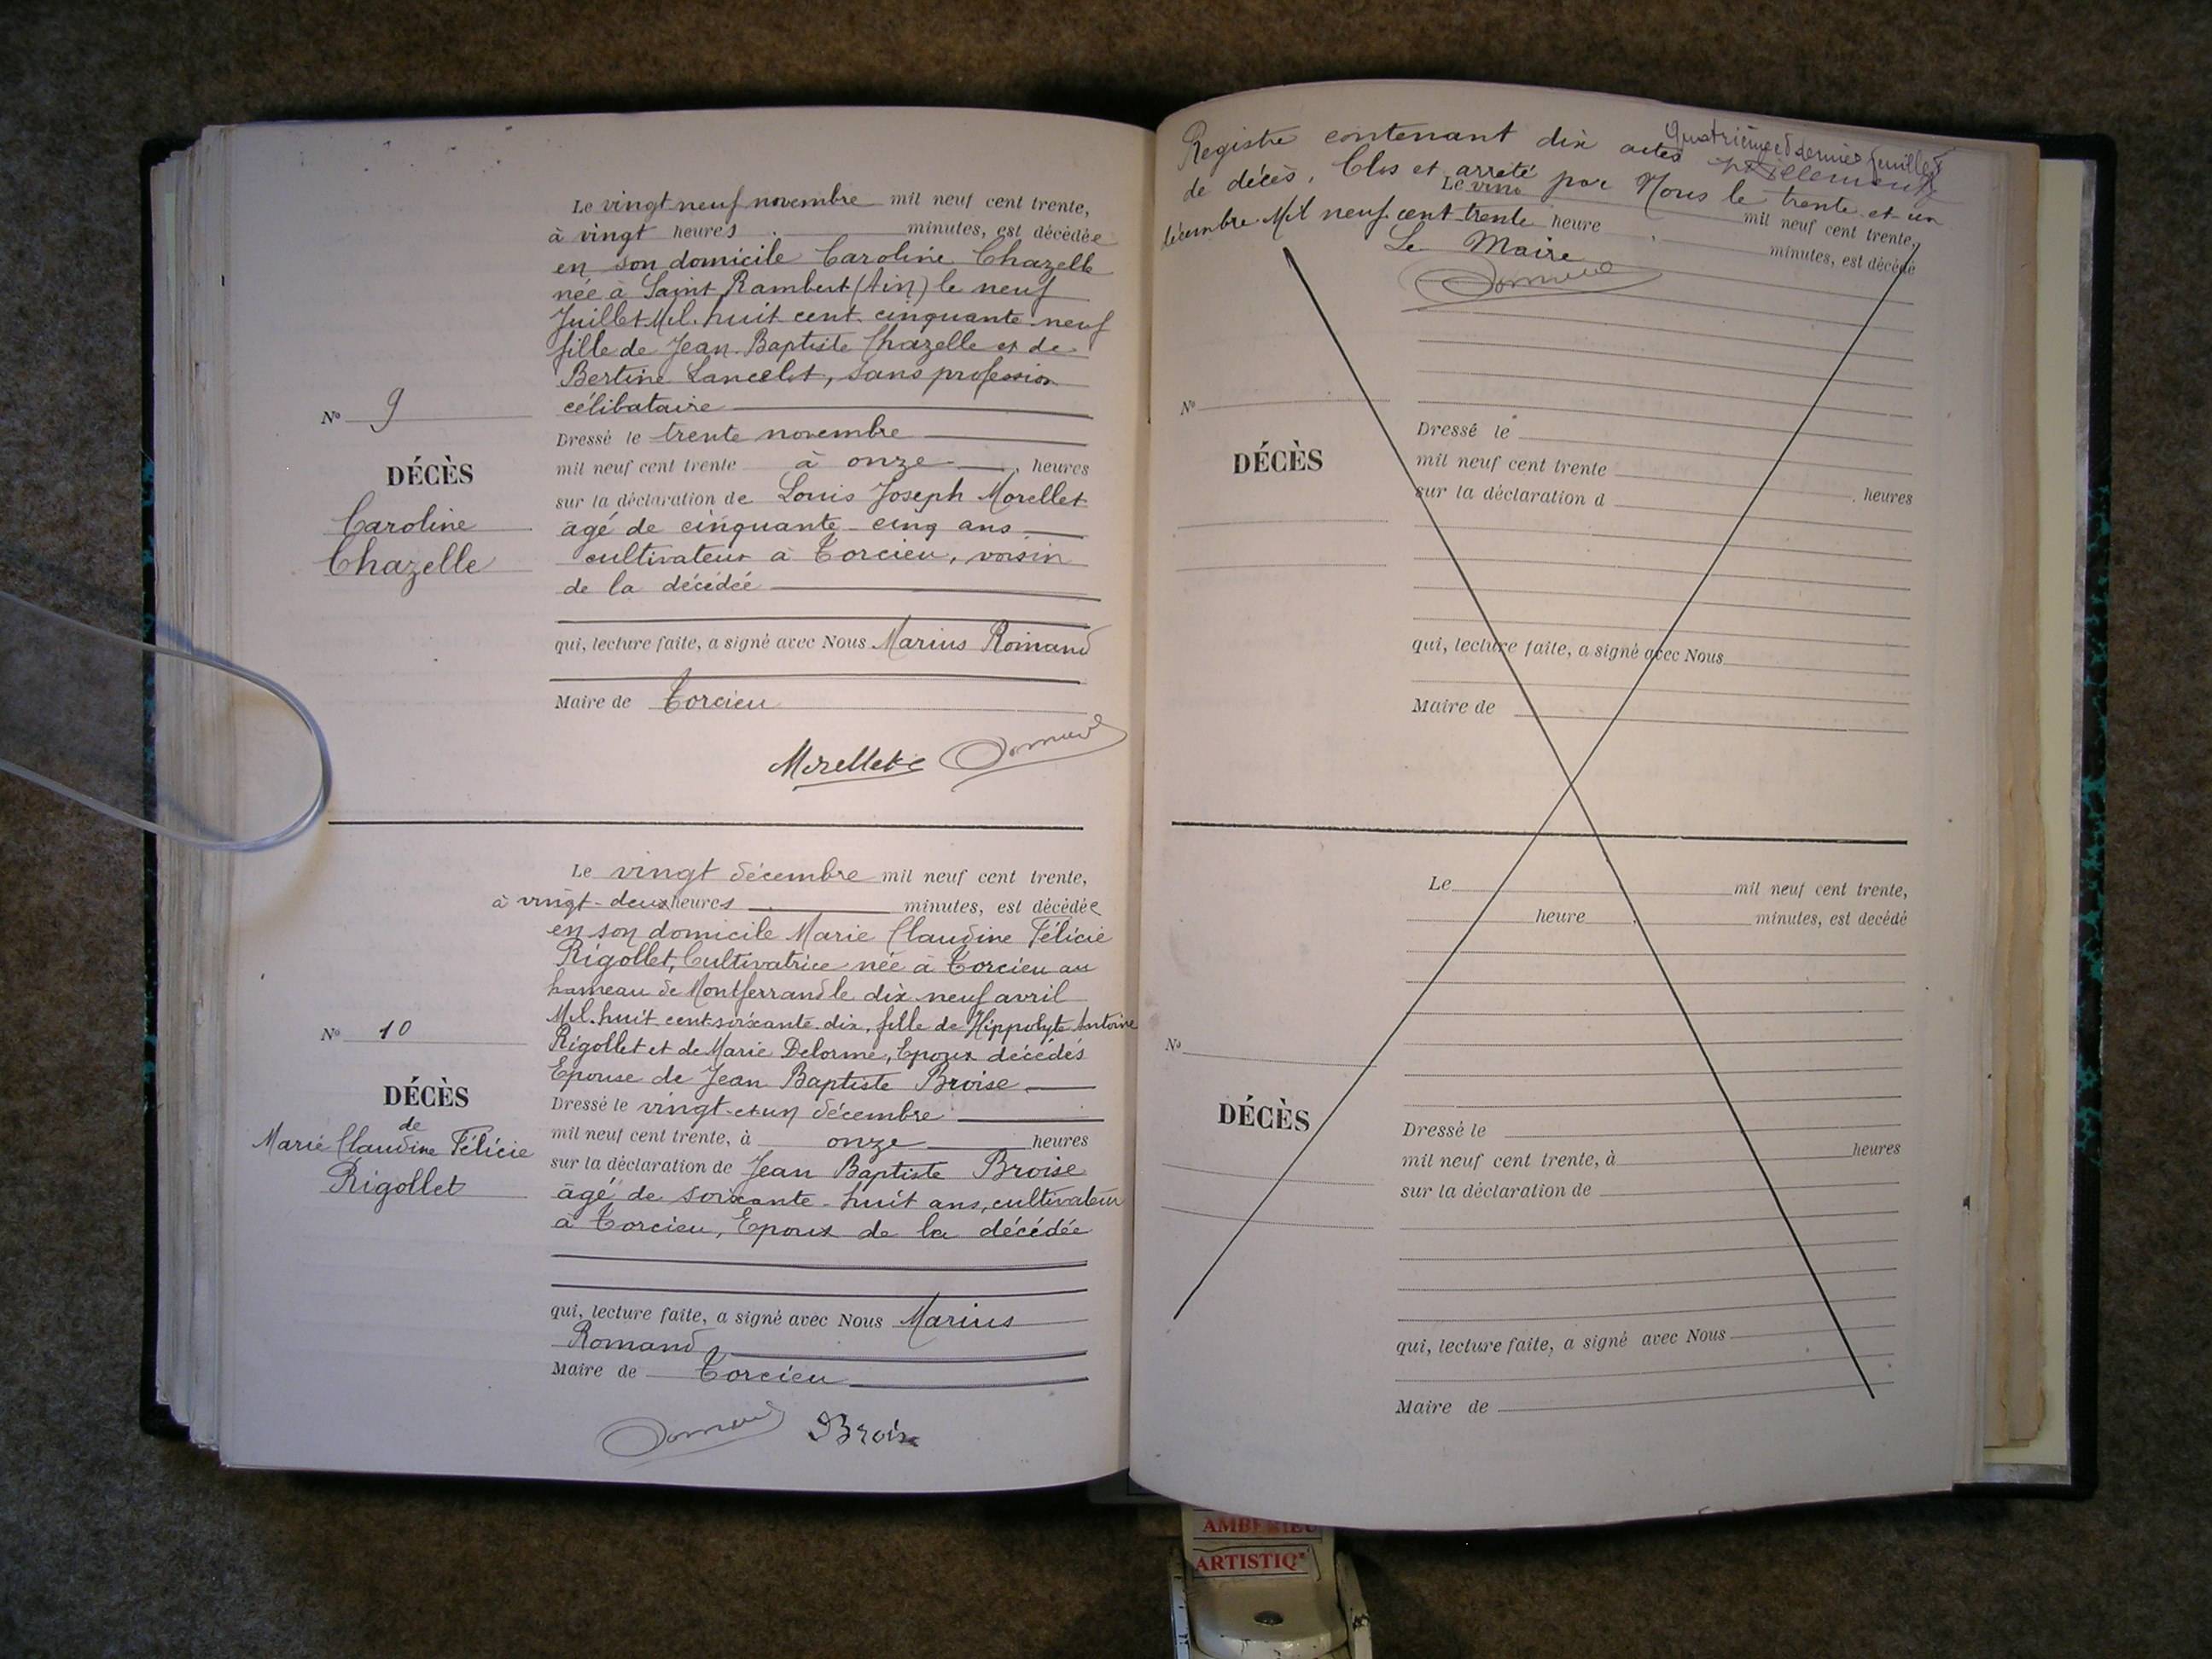 Le vingt neuf novembre mil neuf cent trente,
à vingt heures . minutes, est décédée
en son domicile Caroline Chazelle
née à Saint Rambert (Ain) le neuf
Juillet Mil huit cent cinquante neuf
fille de Jean Baptiste Chazelle et de
Bertine Lancelot, sans profession
célibataire
N° 9
DÉCÈS
Caroline
Chazelle
Dressé le trente novembre
mil neuf cent trente à onze heures
sur la déclaration de Louis Joseph Morellet
âgé de cinquante-cinq ans
cultivateur à Torcieu, voisin
de la décédée
qui, lecture faite, a signé avec Nous Marius Romand
Maire de Torcieu
Morellet
Le vingt décembre mil neuf cent trente,
à vingt-deux heures . minutes, est décédée
en son domicile Marie Claudine Félicie
Rigollet, Cultivatrice née à Torcieu au
hameau de Montferrand le dix neuf avril
Mil huit cent soixante dix, fille de Hippolyte Antoine
Rigollet et de Marie Delorme, Epoux décédés
Epouse de Jean Baptiste Broise
N° 10
DÉCÈS
de
Marie Claudine Félicie
Rigollet
Dressé le vingt-et-un décembre
mil neuf cent trente, à onze heures
sur la déclaration de Jean Baptiste Broise
âgé de soixante-huit ans, cultivateur
à Torcieu, Epoux de la décédée
qui, lecture faite, a signé avec Nous Marius
Romand,
Maire de Torcieu
Romand Broise
Quatrième et dernier feuillet
Registre contenant dix actes
de décès. Clos et arrêté par Nous le trente et un
décembre Mil neuf cent trente
Le Maire
Romand
Le mil neuf cent trente,
heure . minutes, est décédé
N°
DÉCÈS
Dressé le
mil neuf cent trente . heures
sur la déclaration d
qui, lecture faite, a signé avec Nous
Maire de
Le mil neuf cent trente,
heure . minutes, est decédé
N°
DÉCÈS
Dressé le
mil neuf cent trente, à heures
sur la déclaration de
qui, lecture faite, a signé avec Nous
Maire de
AMBERIEU
ARTISTIQ